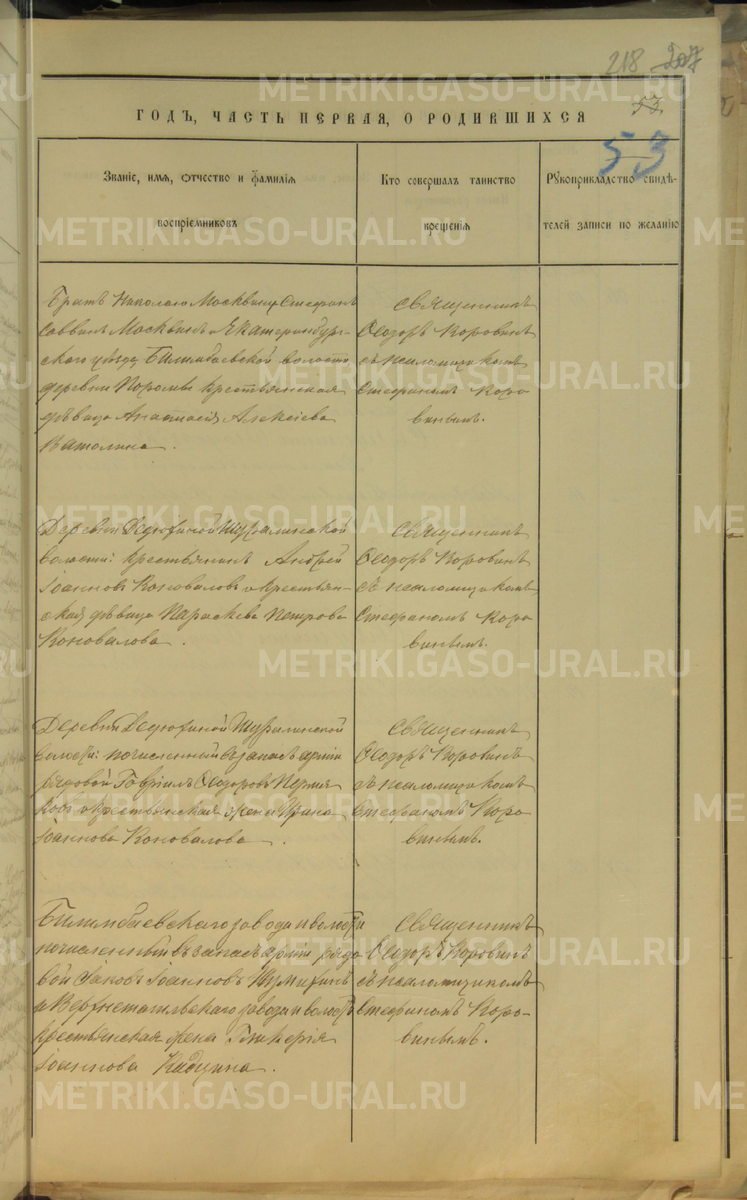 218 207
53
53
ГОДЪ, ЧАСТЬ ПЕРВАЯ, О РОДИВШИХСЯ
Званіе, имя, отчество и фамилія
воспріемниковъ
Кто совершалъ таинство
крещенія
Рукоприкладство свидѣ-
телей записи по желанію
Братъ Николаю Москвину Стефанъ
Саввинъ Москвинъ и Екатеринбур-
скаго уѣзда Билимбаевской волости
деревни Коромы крестьянская
дѣвица Анастасія Алексіева
Ватолина.
Священникъ
Ѳеодоръ Коровинъ
съ псаломщикомъ
Стефаномъ Коро
винымъ.
Деревни Дедюхиной Шуралинской
волости: крестьянинъ Андрей
Іоанновъ Коноваловъ и крестьян-
ская дѣвица Параскева Петрова
Коновалова.
Священникъ
Ѳеодоръ Коровинъ
съ псаломщикомъ
Стефаномъ Коро
винымъ.
Деревни Дедюхиной Шуралинской
волости: почисленный въ запасъ арміи
рядовой Гавріилъ Ѳеодоровъ Пермя
ковъ и крестьянская жена Ирина
Іоаннова Коновалова.
Священникъ
Ѳеодоръ Коровинъ
съ псаломщикомъ
Стефаномъ Коро-
винымъ.
Билимбаевскаго завода и волости
почисленный въ запасъ арміи рядо
вой Іаковъ Іоанновъ Шумихинъ
и Верхнетагильскаго завода и волости
крестьянская жена Гликерія
Іоаннова Кадцина.
Священникъ
Ѳеодоръ Коровинъ
съ псаломщикомъ
Стефаномъ Коро-
винымъ.
METRIKI.GASO-URAL.RU